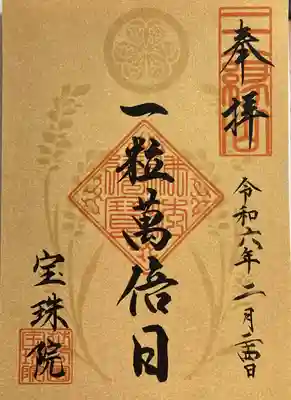 奉拝
一粒萬倍日
令和六年二月二四日
宝珠院